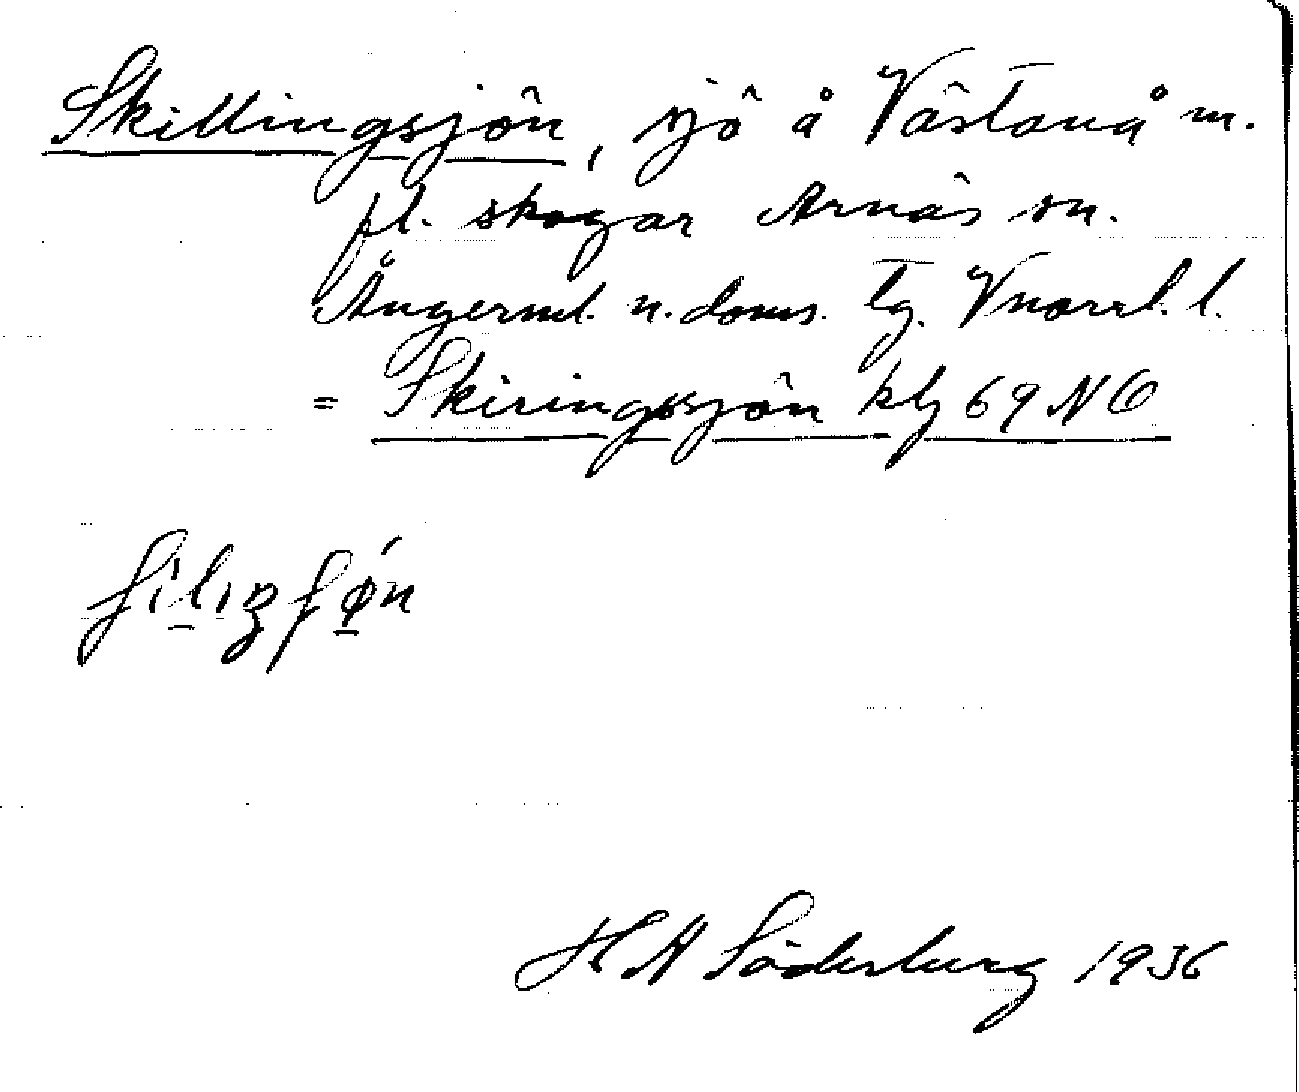 Skillingsjön, sjö å Västanå m.
fl. skogar Arnäs sn.
Ångerml. n. doms. tg. Vnorrl. l.
= Skiringssjön kbl 69 NO
H A Söderberg 1936